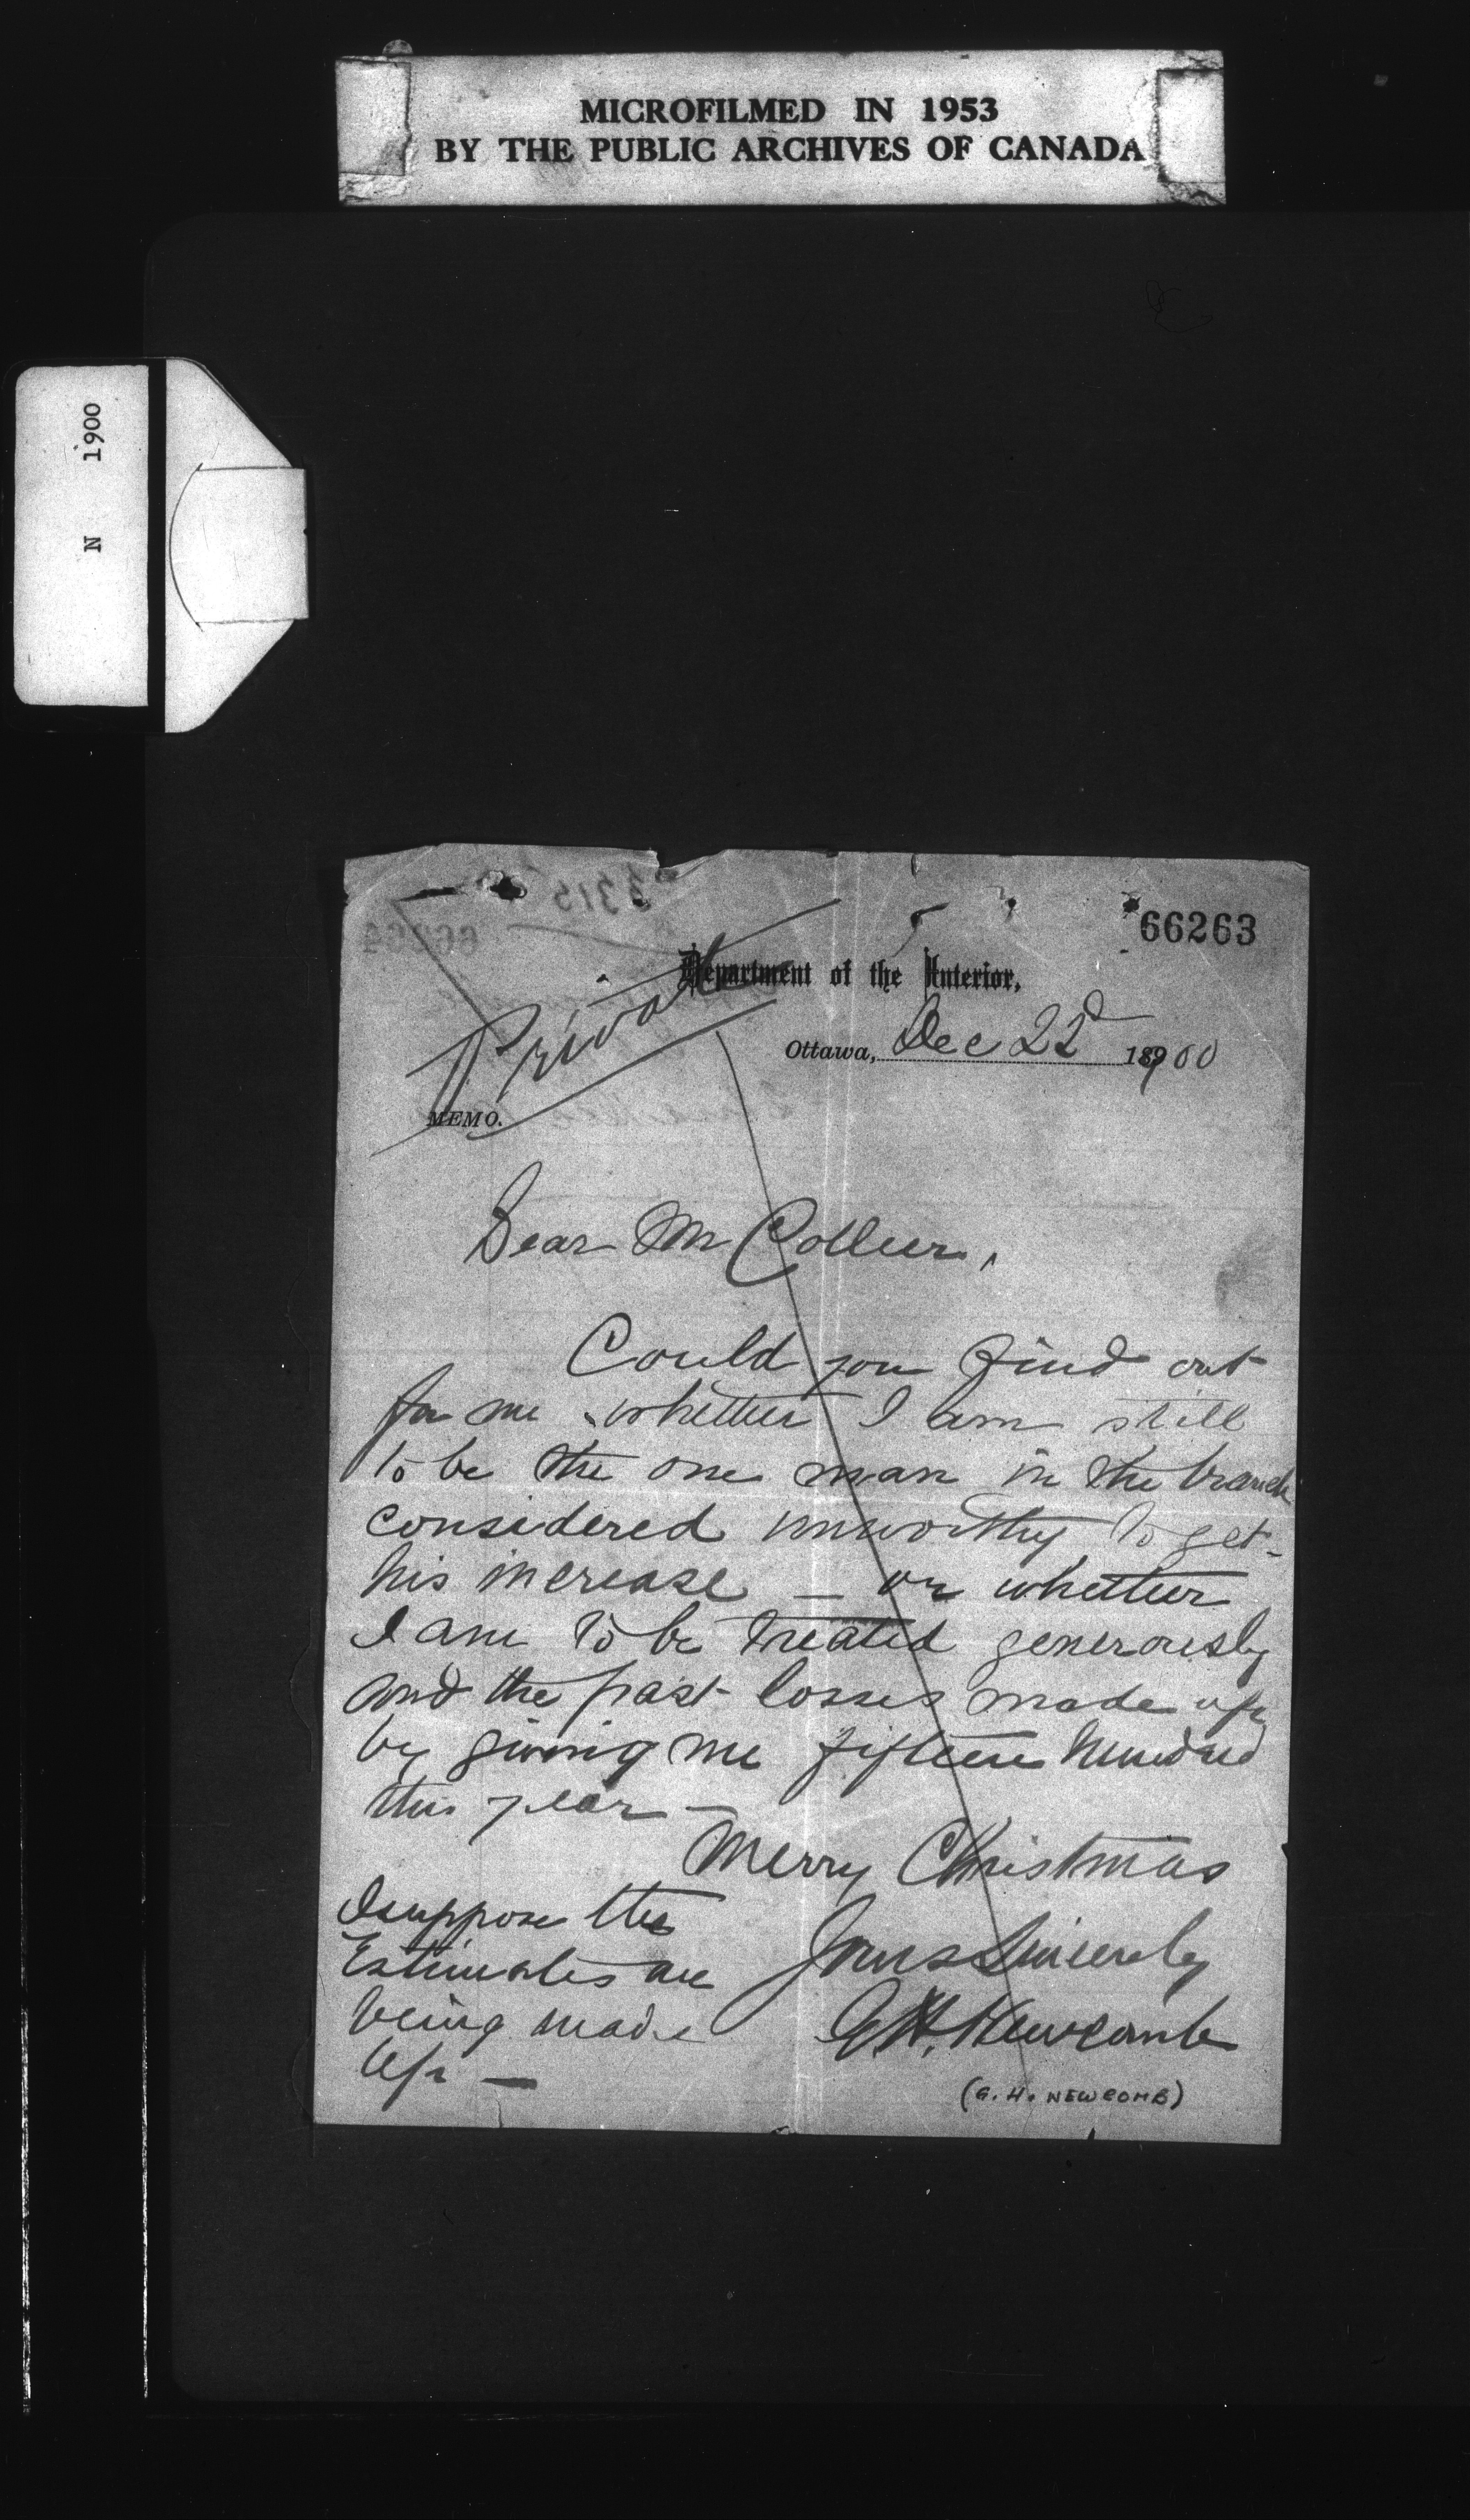 MICROFILMED IN 1953
BY THE PUBLIC ARCHIVES OF CANADA
N 1900
66263
Department of the Interior,
Private
Ottawa, Dec 22d 1900
MEMO.
Dear Mr Collier,
Could you find out
for me whether I am still
to be the one man in the branch
considered unworthy to get
his increase — or whether
I am to be treated generously
and the past losses made up
by giving me fifteen hundred
this year —
Merry Christmas
Yours Sincerely
G.H. Newcomb
(G. H. NEWCOMB)
I suppose the
Estimates are
being made
up —